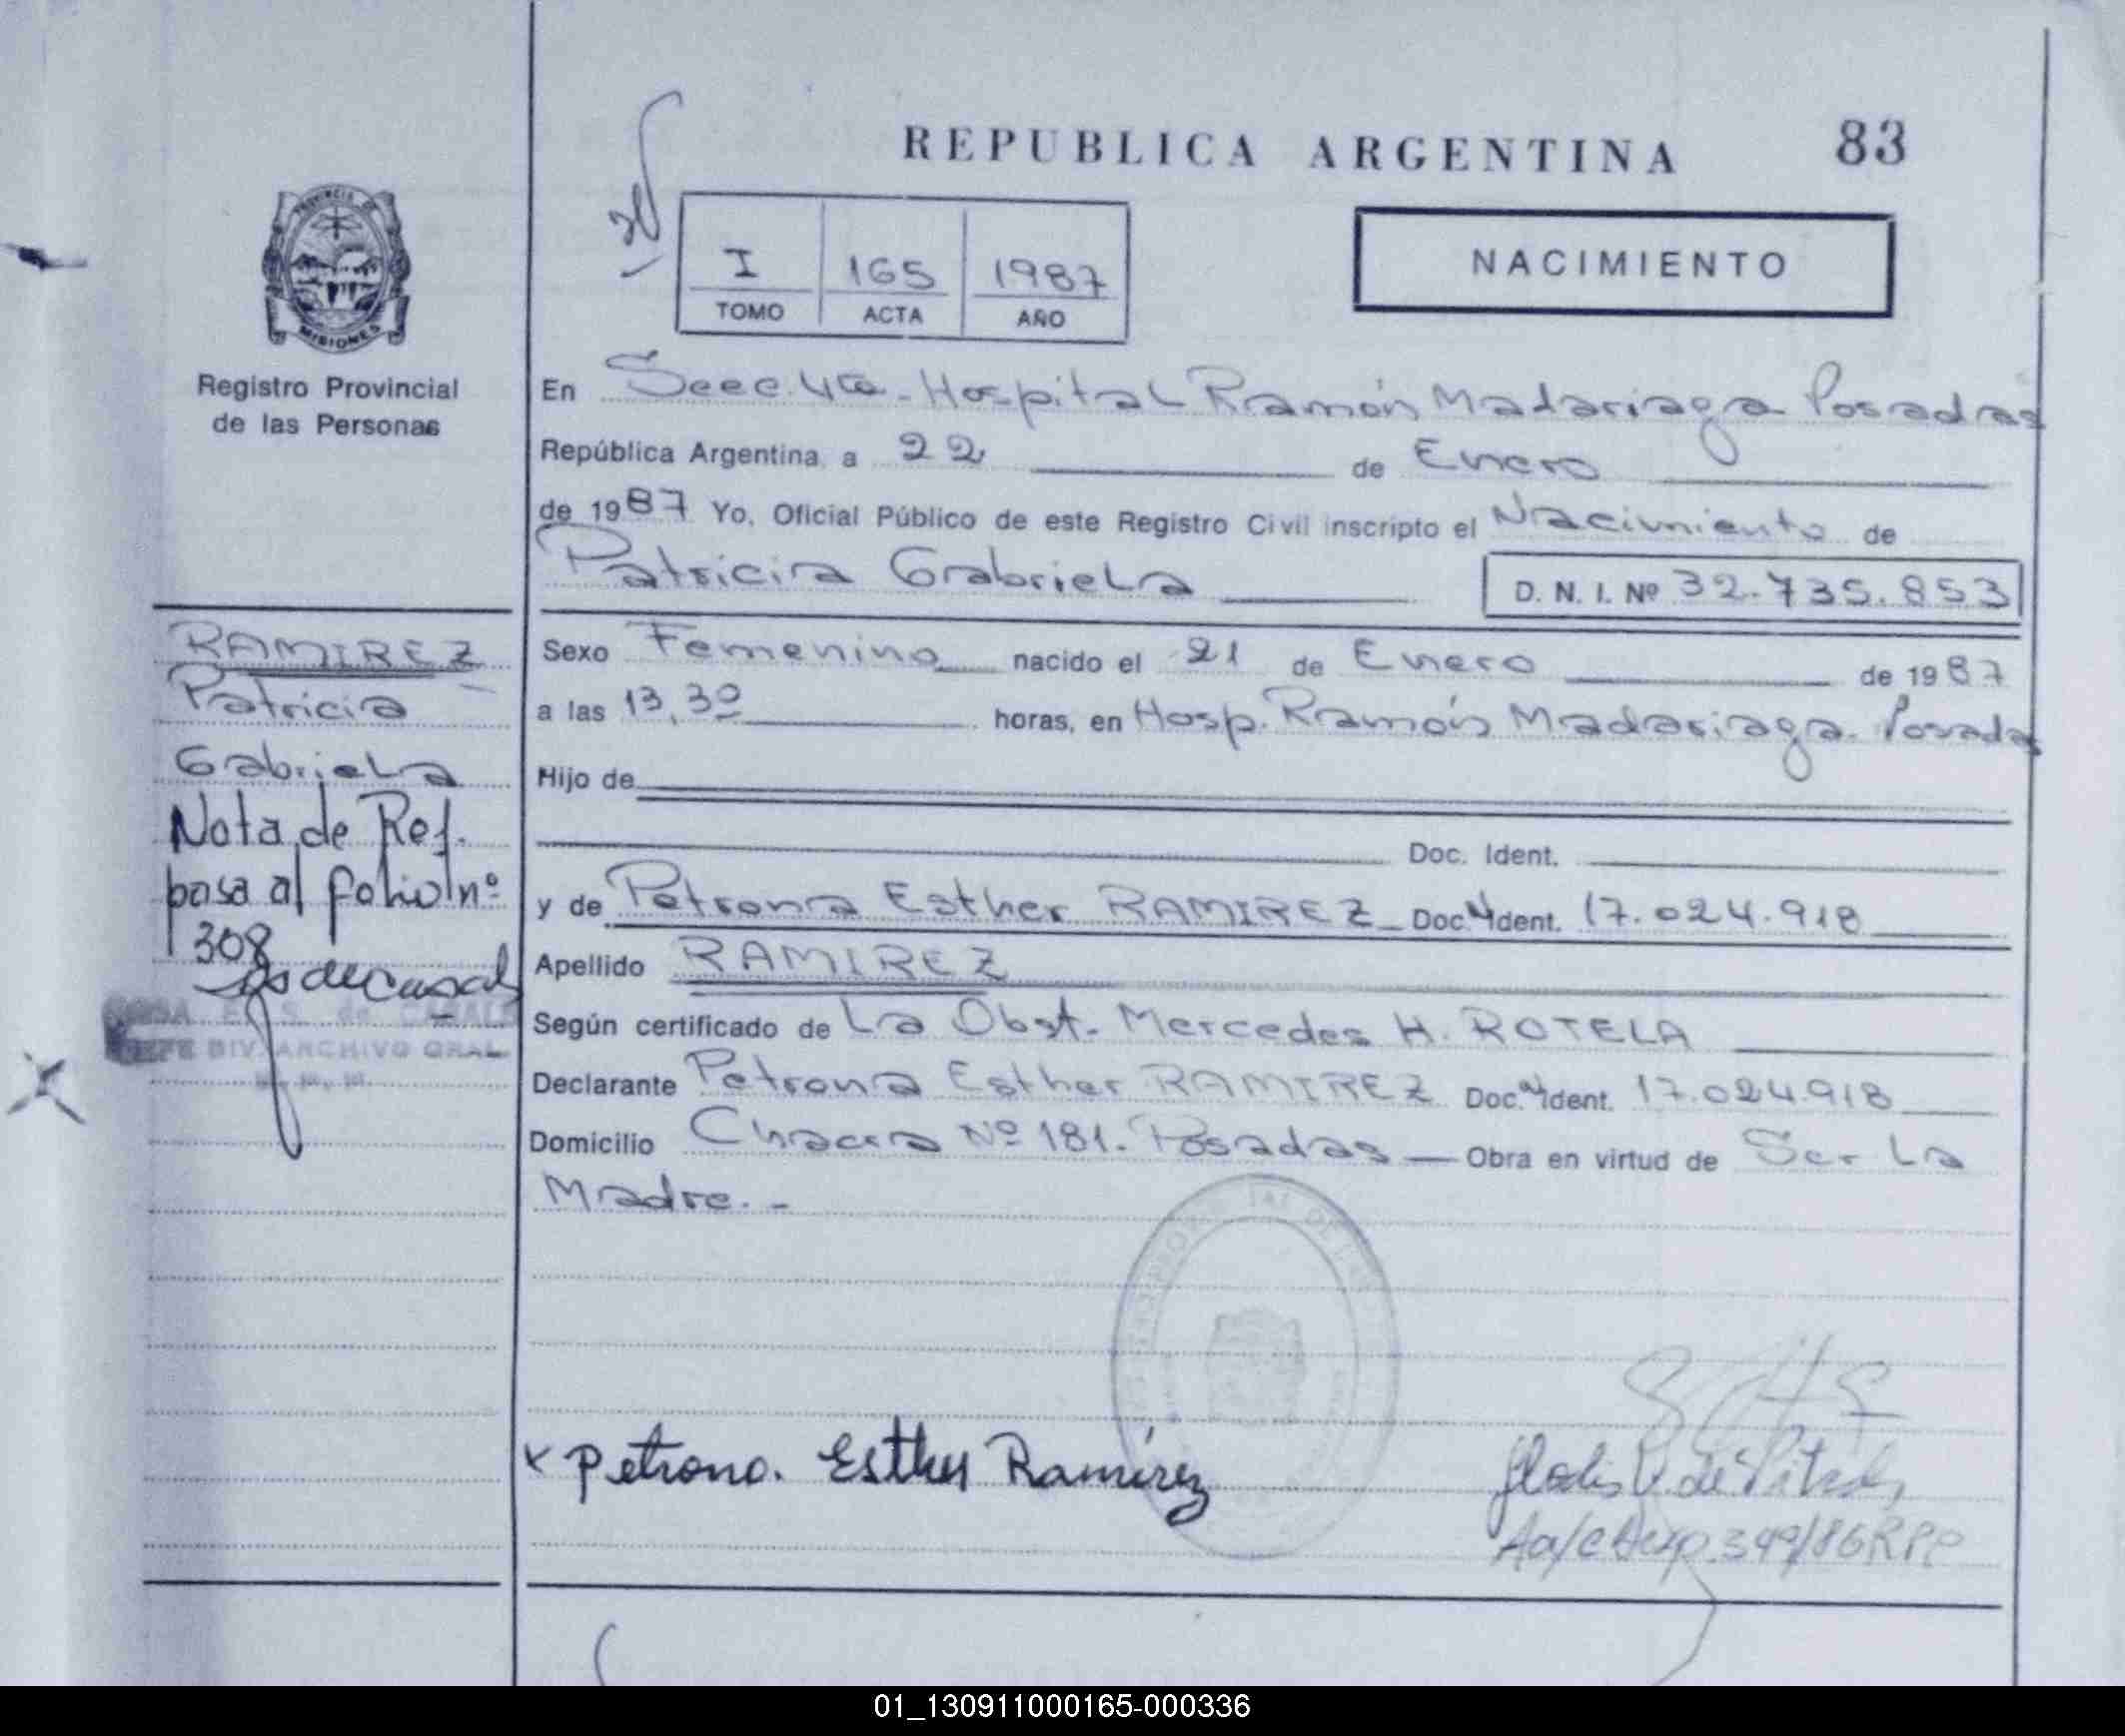 REPUBLICA ARGENTINA
83
PROVINCIA DE
MISIONES
Registro Provincial
de las Personas
I 165 1987
TOMO ACTA AÑO
NACIMIENTO
En Secc. 4ta. Hospital Ramón Madariaga Posadas
República Argentina, a 22 de Enero
de 1987 Yo, Oficial Público de este Registro Civil inscripto el Nacimiento de
Patricia Gabriela D. N. I. Nº 32.735.853
RAMIREZ
Patricia
Gabriela
Nota de Ref.
pasa al folio nº
308
JEFE DIV. ARCHIVO GRAL
Sexo Femenino nacido el 21 de Enero de 1987
a las 13,30 horas, en Hosp. Ramón Madariaga. Posadas
Hijo de
Doc. Ident.
y de Petrona Esther RAMIREZ Doc. Ident. 17.024.918
Apellido RAMIREZ
Según certificado de La Obst. Mercedes H. ROTELA
Declarante Petrona Esther RAMIREZ Doc. Ident. 17.024.918
Domicilio Chacra Nº 181. Posadas Obra en virtud de Ser La
Madre.-
x Petrona. Esther Ramírez
349/86 RPP
01_130911000165-000336